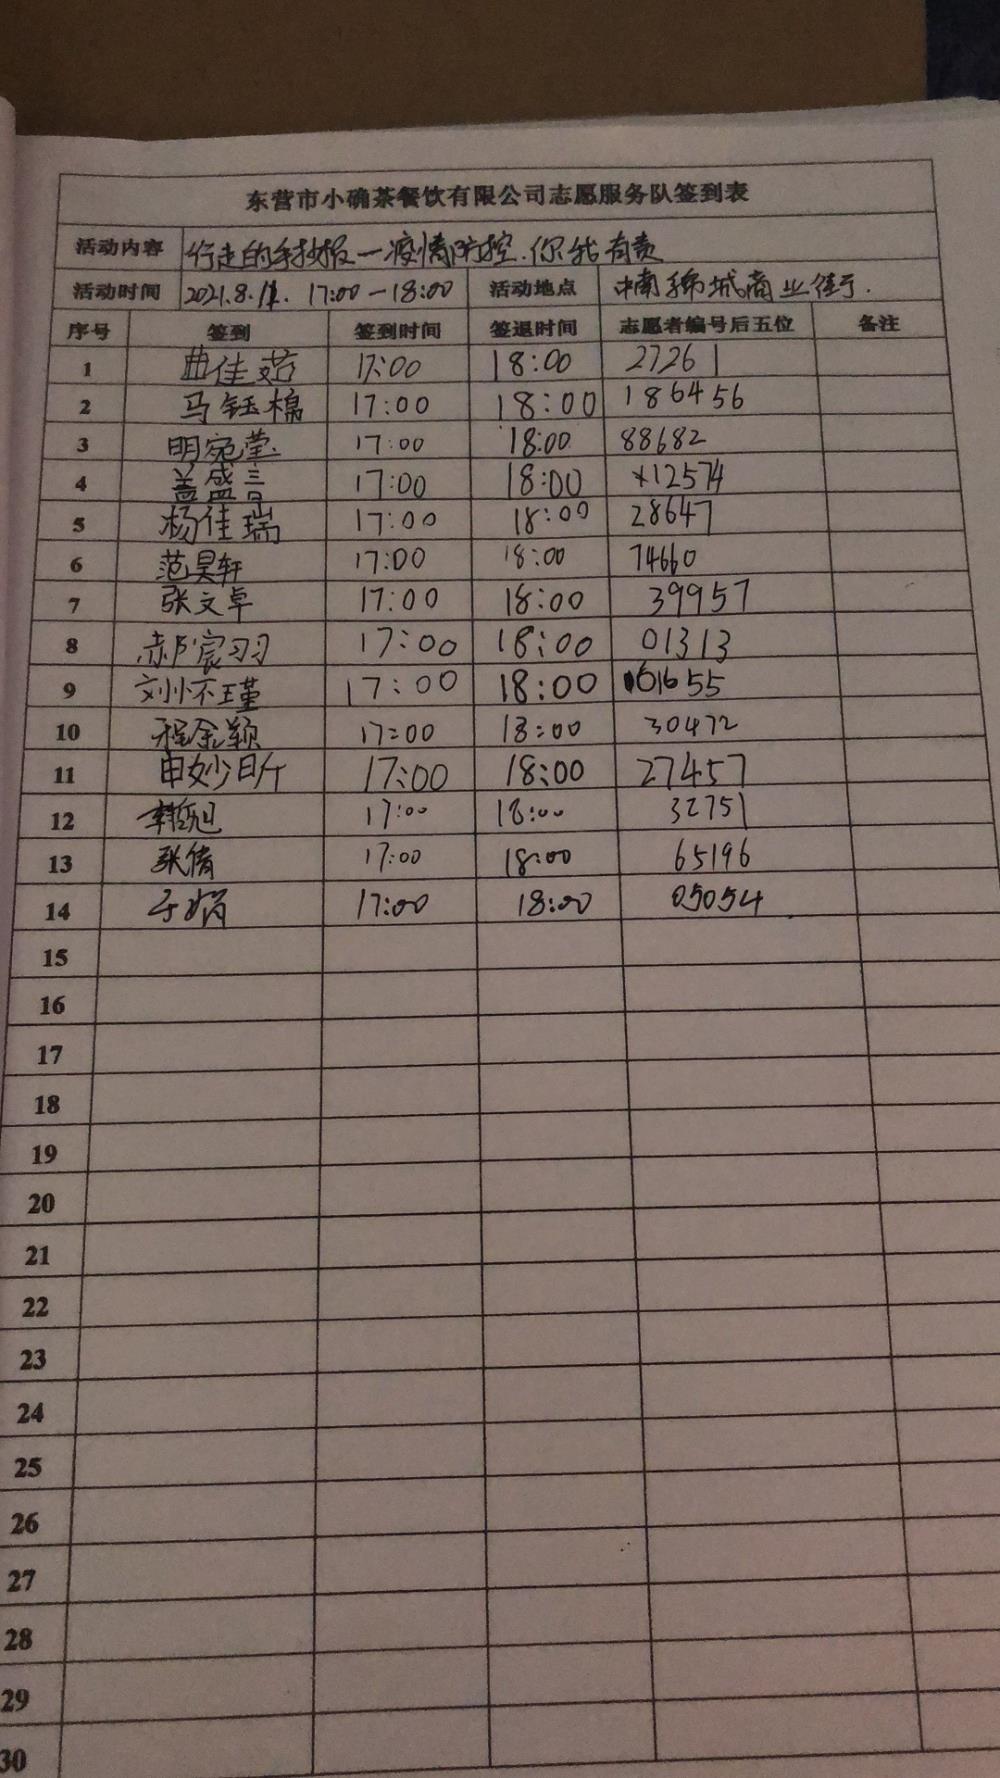 东营市小确茶餐饮有限公司志愿服务队签到表
活动内容 行走的手抄报—疫情防控.你我有责
活动时间 2021.8.11. 17:00—18:00 活动地点 中南 城商业街.
序号 签到 签到时间 签退时间 志愿者编号后五位 备注
1 曲佳茹 17:00 18:00 27261
2 马钰棉 17:00 18:00 186456
3 明宛莹 17:00 18:00 88682
4 盖盛言 17:00 18:00 12574
5 杨佳瑞 17:00 18:00 28647
6 范昊轩 17:00 18:00 74660
7 张文卓 17:00 18:00 39957
8 郝宸羽 17:00 18:00 01313
9 刘怀瑾 17:00 18:00 61655
10 程金颖 17:00 18:00 30472
11 申妙昕 17:00 18:00 27457
12 17:00 18:00 32751
13 张倩 17:00 18:00 65196
14 于娟 17:00 18:00 05054
15
16
17
18
19
20
21
22
23
24
25
26
27
28
29
30